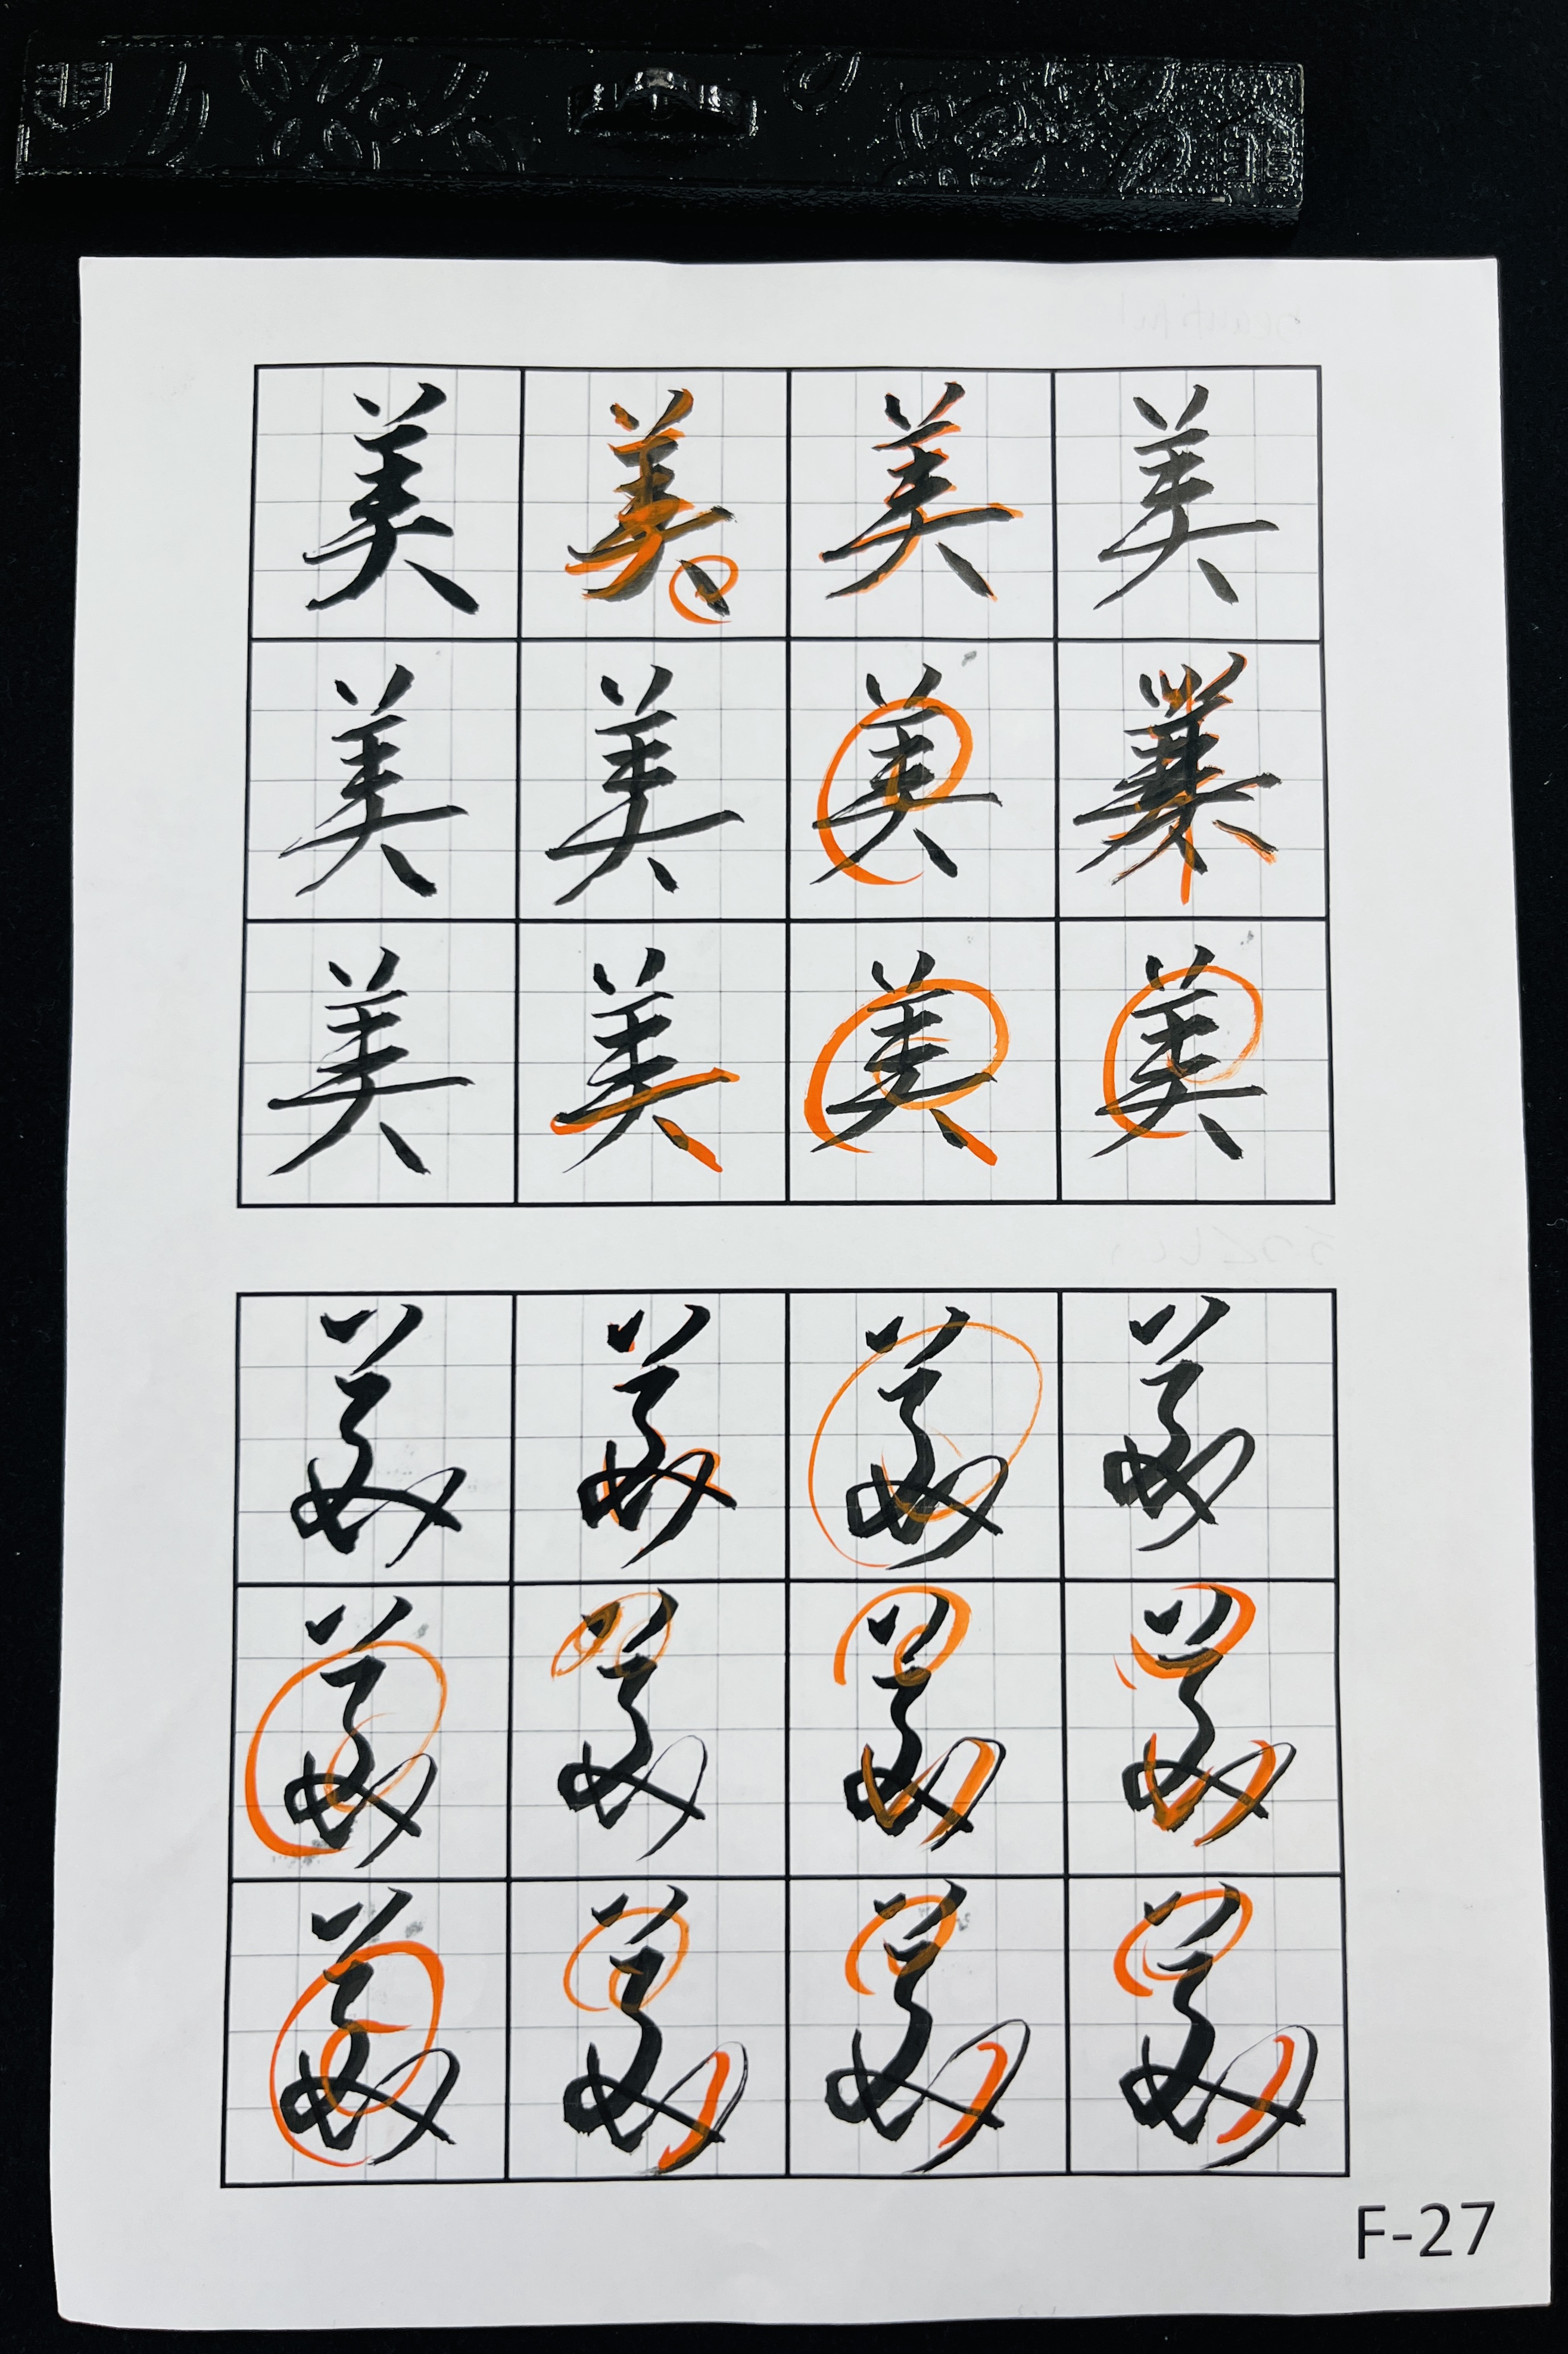 美 美 美 美
美 美 美 美
美 美 美 美
美 美 美 美
美 美 美 美
美 美 美 美
F-27